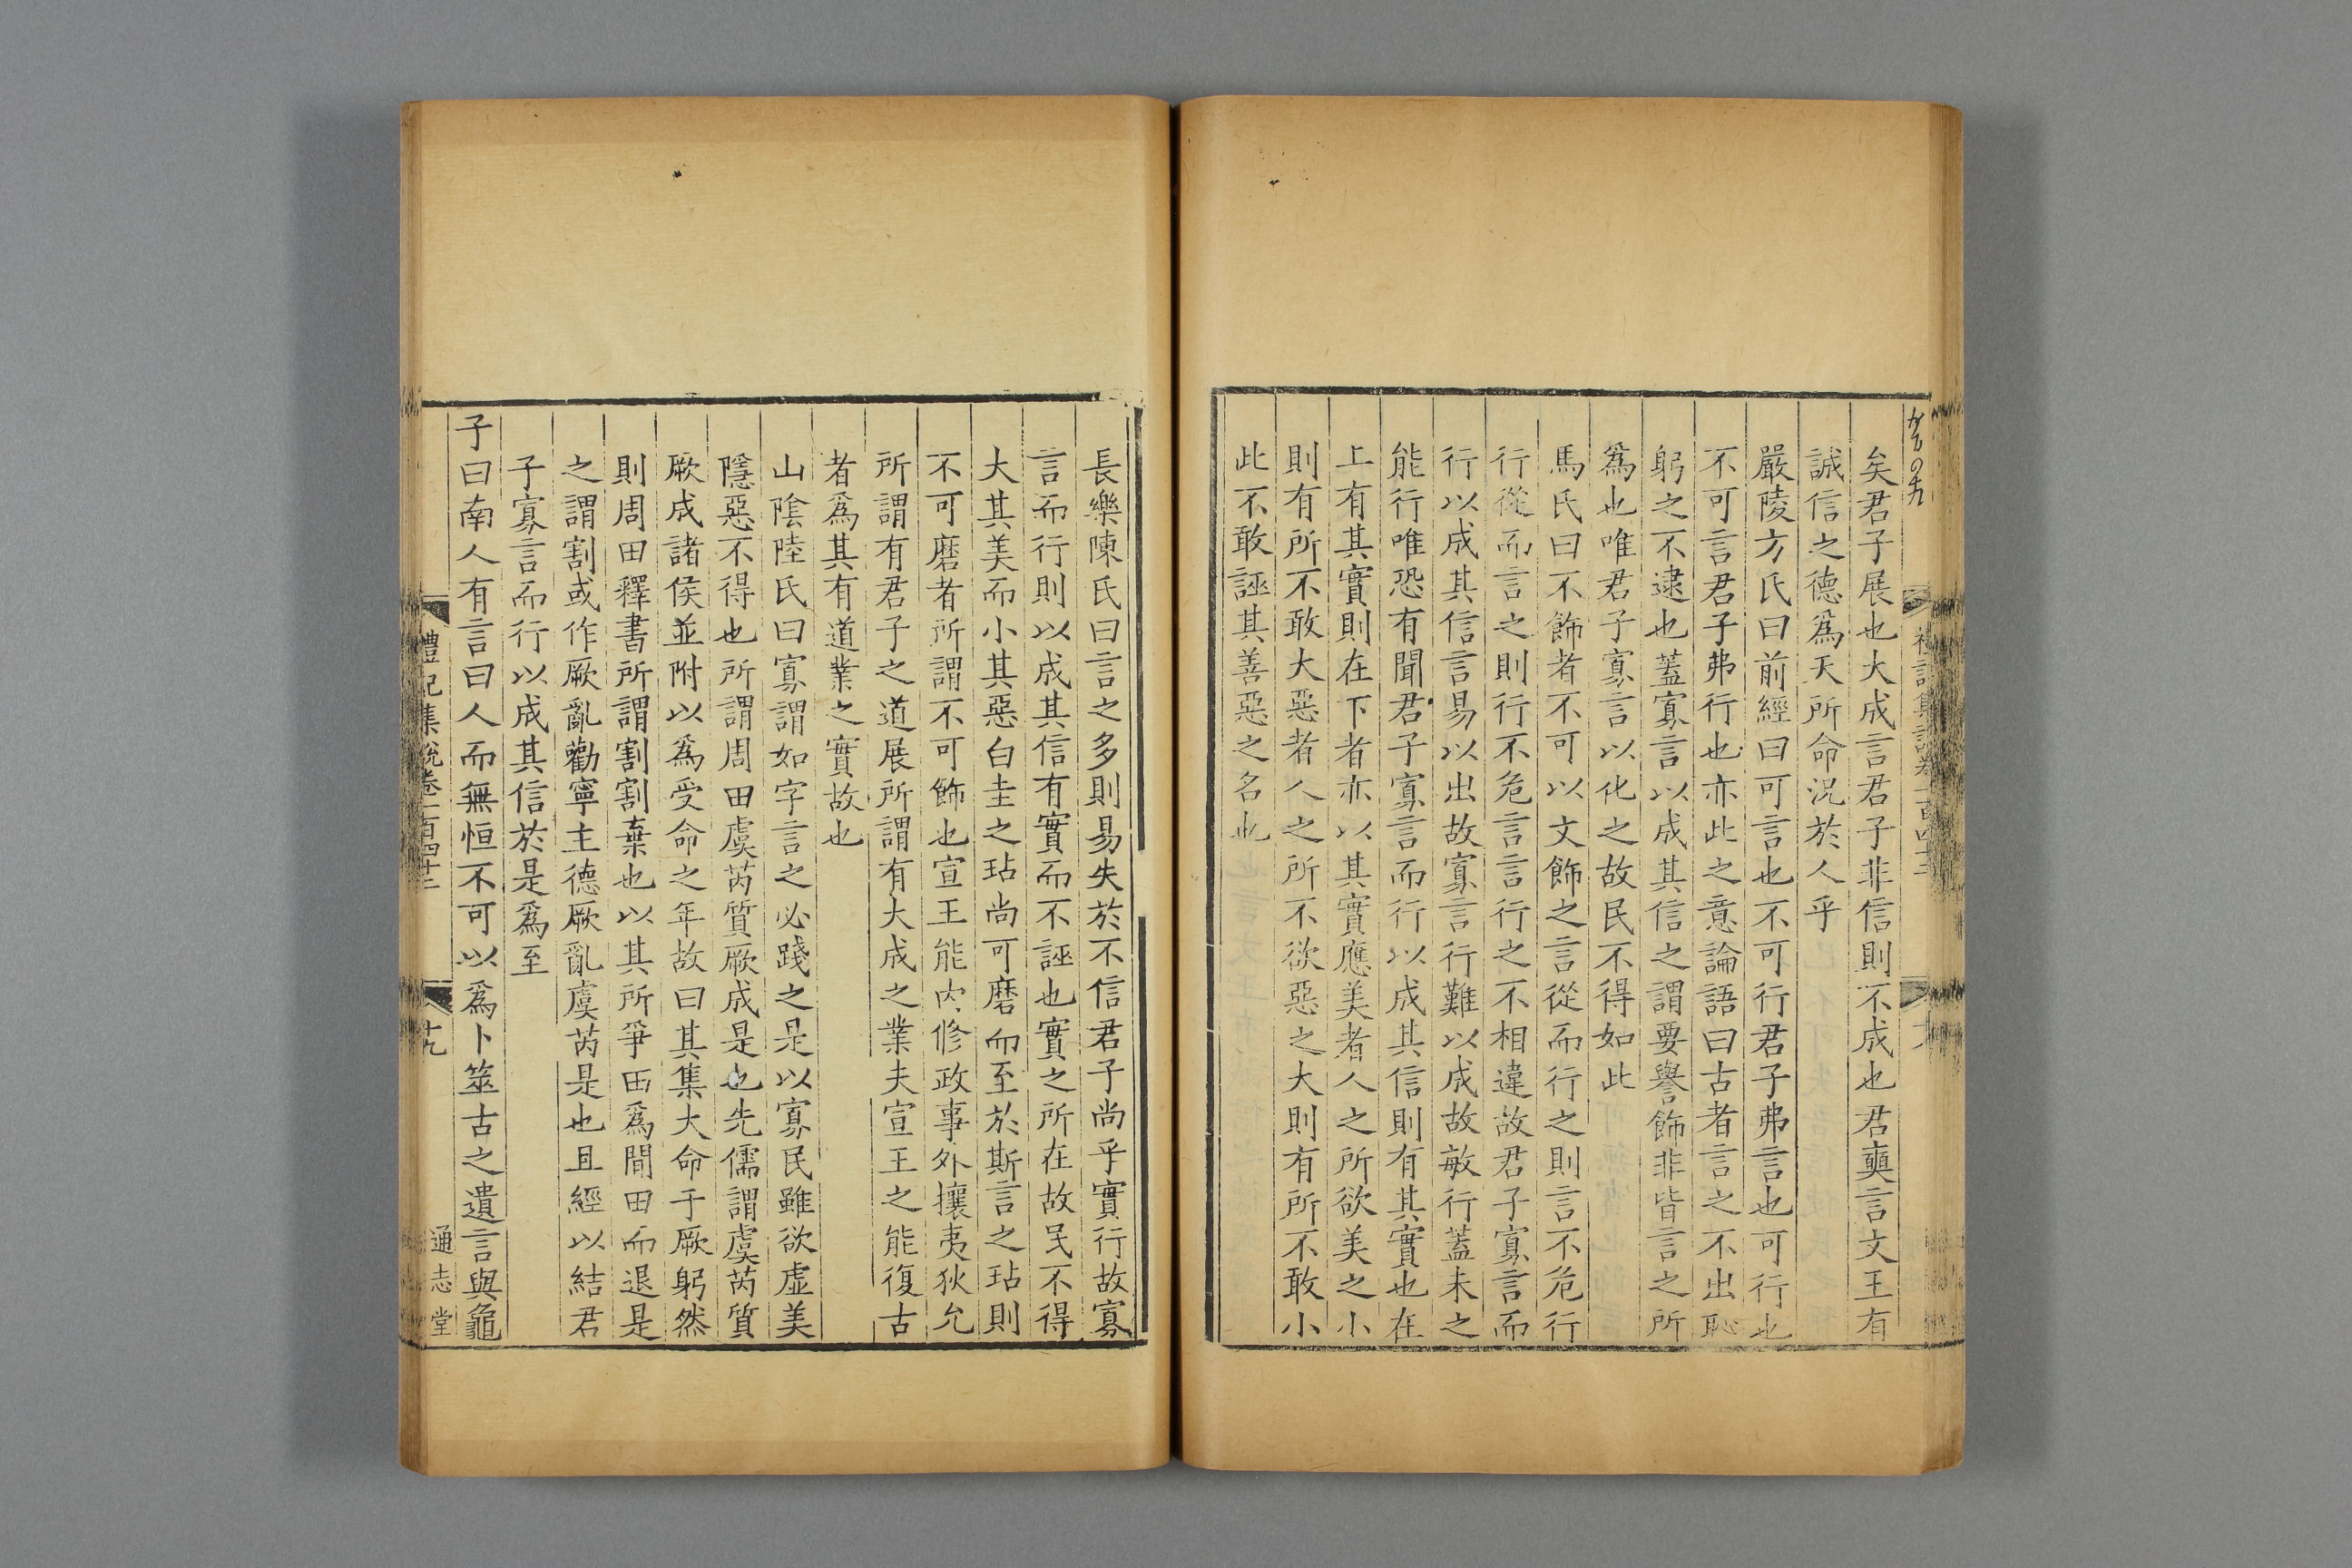 矣君子展也大成言君子非信則不成也君奭言文王有
誠信之德爲天所命況於人乎
嚴陵方氏曰前經曰可言也不可行君子弗言也可行也
不可言君子弗行也亦此之意論語曰古者言之不出恥
躬之不逮也蓋寡言以成其信之謂要譽飾非皆言之所
爲也唯君子寡言以化之故民不得如此
馬氏曰不飾者不可以文飾之言從而行之則言不危行
行從而言之則行不危言言行之不相違故君子寡言而
行以成其信言易以出故寡言行難以成故敏行蓋未之
能行唯恐有聞君子寡言而行以成其信則有其實也在
上有其實則在下者亦以其實應美者人之所欲美之小
則有所不敢大惡者人之所不欲惡之大則有所不敢小
此不敢誣其善惡之名也
長樂陳氏曰言之多則易失於不信君子尚乎實行故寡
言而行則以成其信有實而不誣也實之所在故民不得
大其美而小其惡白圭之玷尚可磨而至於斯言之玷則
不可磨者所謂不可飾也宣王能內修政事外攘夷狄允
所謂有君子之道展所謂有大成之業夫宣王之能復古
者爲其有道業之實故也
山陰陸氏曰寡謂如字言之必踐之是以寡民雖欲虛美
隱惡不得也所謂周田虞芮質厥成是也先儒謂虞芮質
厥成諸侯並附以爲受命之年故曰其集大命于厥躬然
則周田釋書所謂割割棄也以其所爭田爲閒田而退是
之謂割或作厥亂勸寧主德厥亂虞芮是也且經以結君
子寡言而行以成其信於是爲至
子曰南人有言曰人而無恒不可以爲卜筮古之遺言與龜
禮記集說卷一百四十三
十九
通志堂